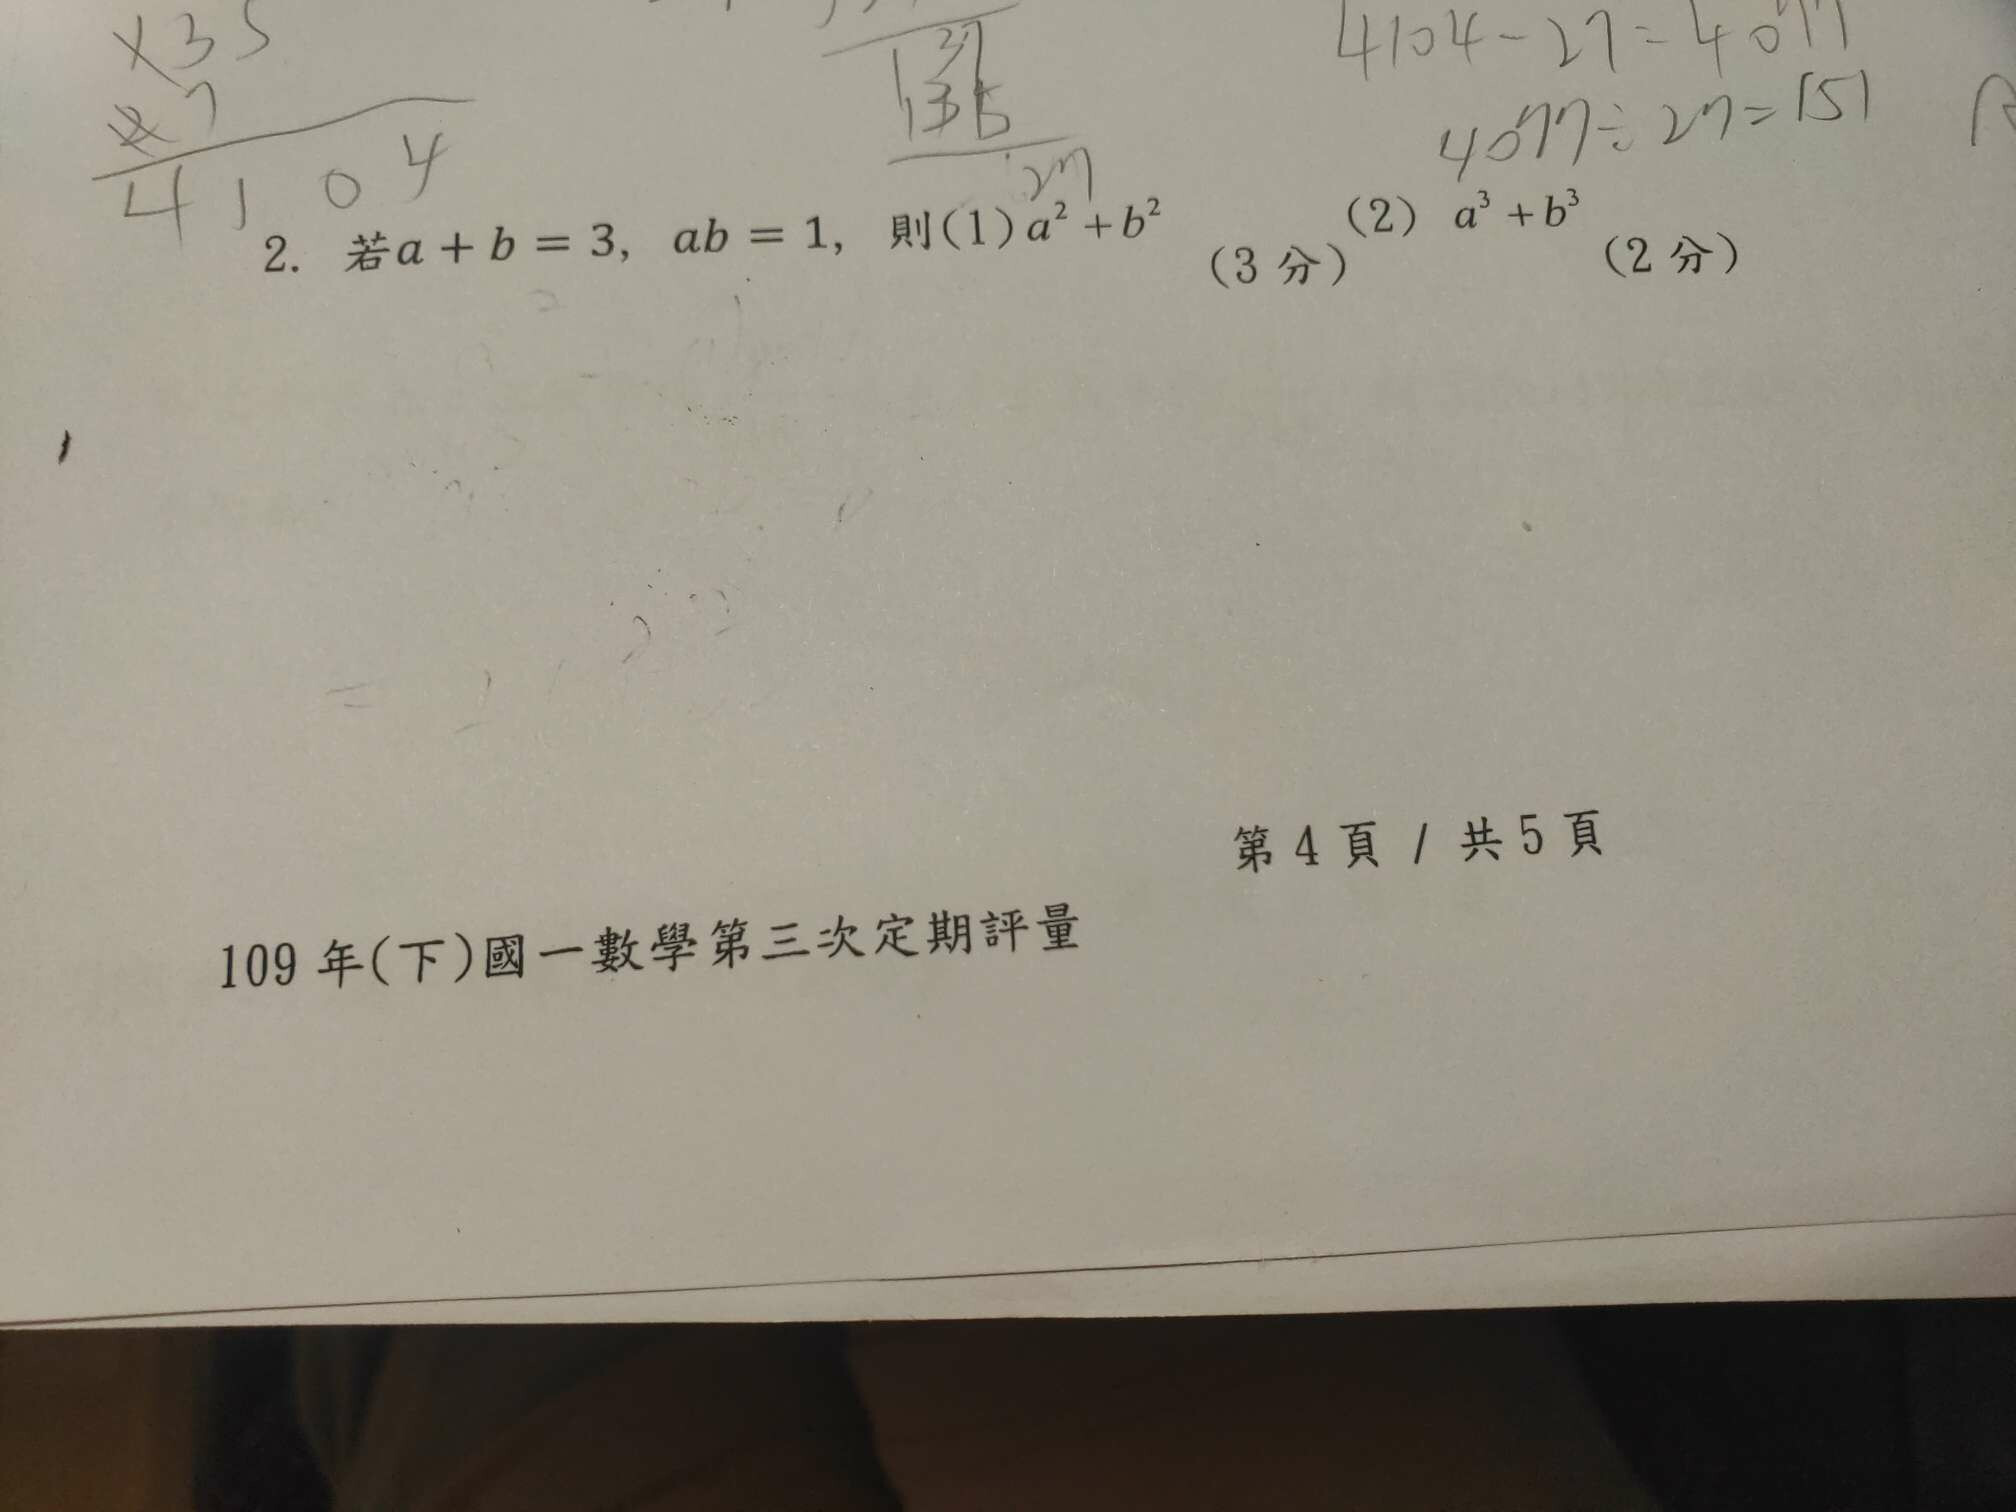 ×35
27
4104
137
135
27
4104-27=4077
4077÷27=151
2. 若a + b = 3, ab = 1, 則(1) a² + b² (3 分) (2) a³ + b³ (2 分)
第 4 頁 / 共 5 頁
109 年(下)國一數學第三次定期評量